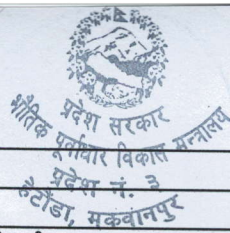 प्रदेश सरकार
भौतिक पूर्वाधार विकास मन्त्रालय
प्रदेश नं. ३
हेटौंडा, मकवानपुर